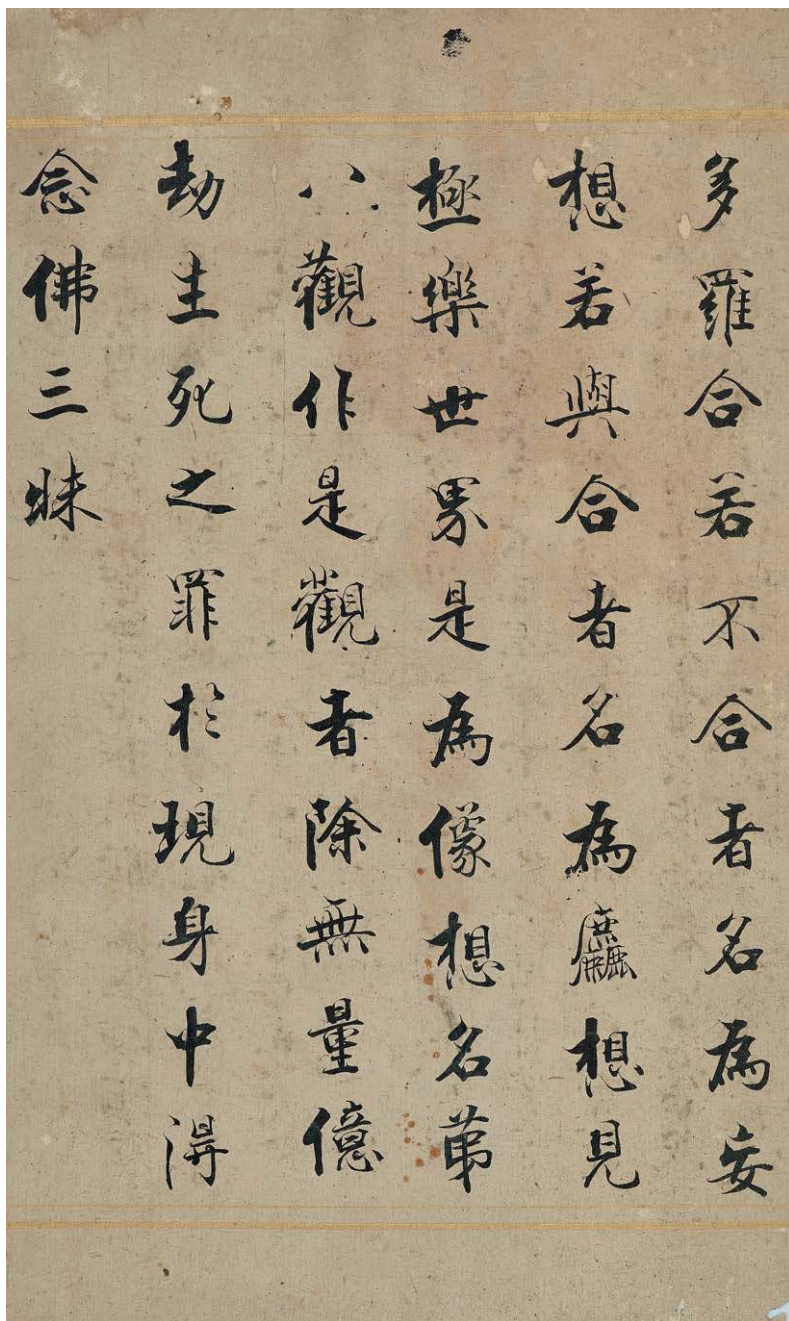 多羅合若不合者名為妄
想若與合者名為麤想見
極樂世界是為像想名第
八觀作是觀者除無量億
劫生死之罪於現身中得
念佛三昧